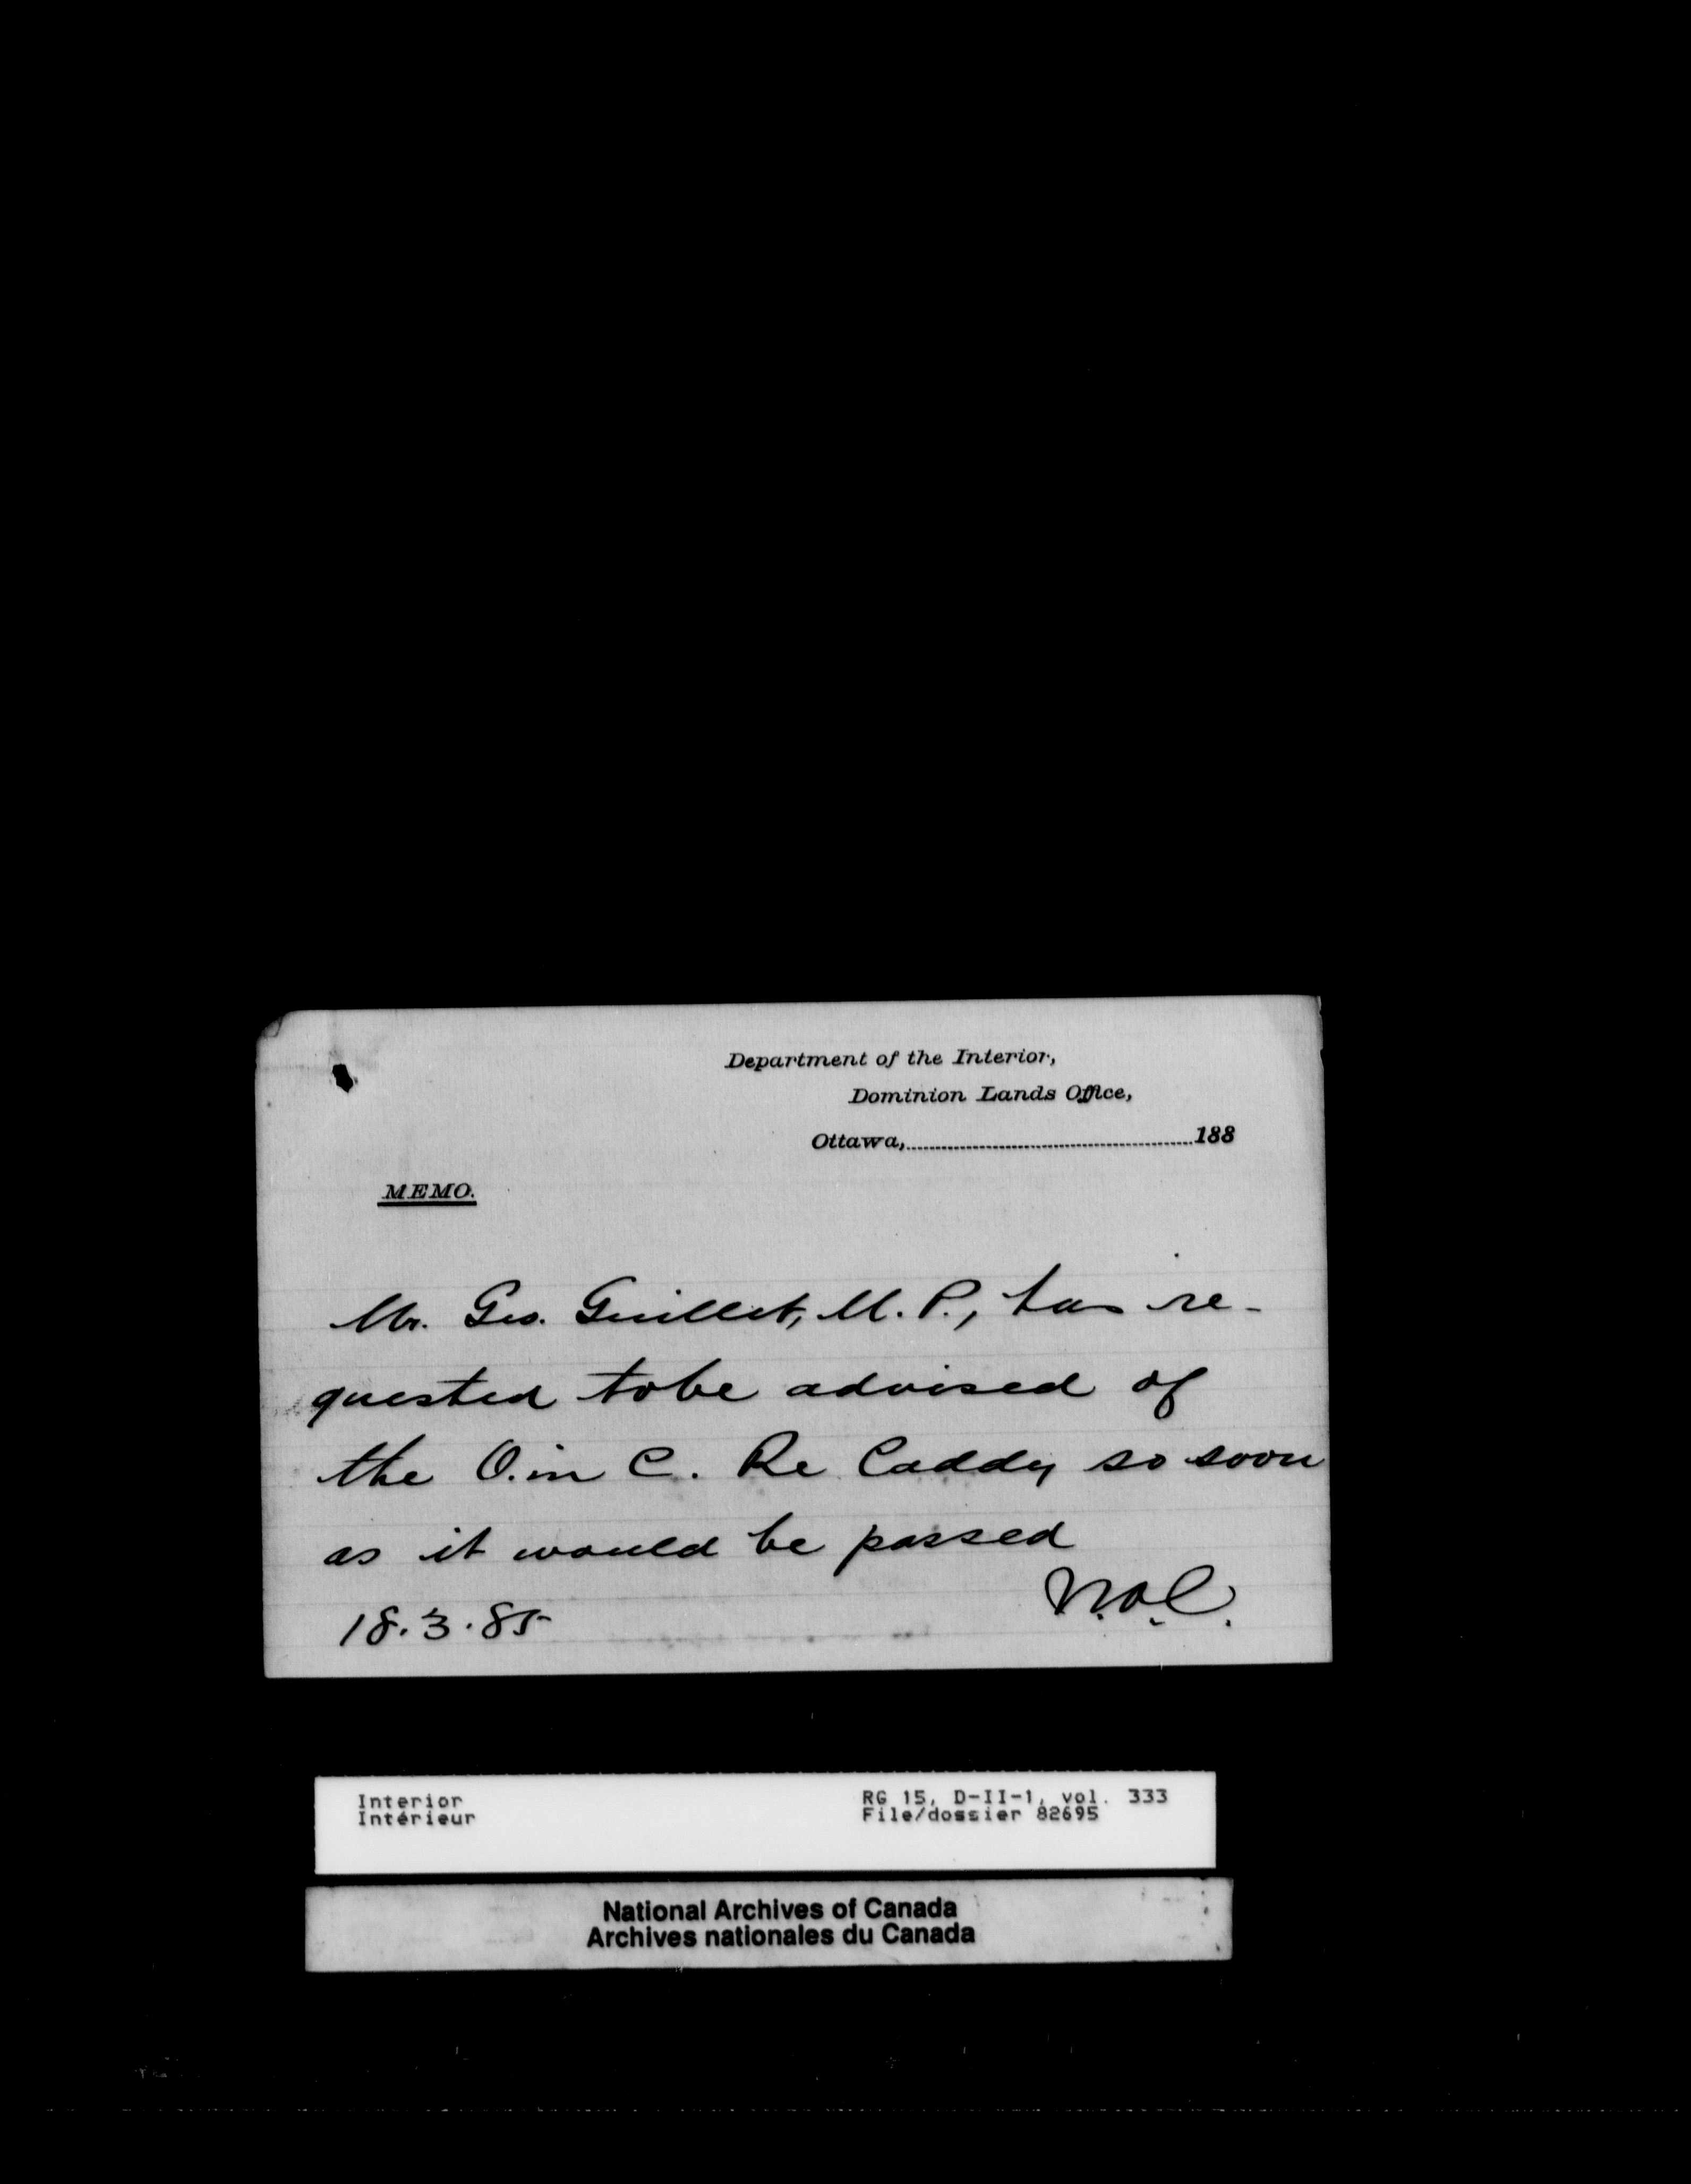 Department of the Interior,
Dominion Lands Office,
Ottawa,..........188
MEMO.
Mr. Geo. Guillet, M. P., has re-
quested to be advised of
the O. in C. Re Caddy so soon
as it would be passed
N.O.C.
18.3.85
Interior
Intérieur
RG 15, D-II-1, vol. 333
File/dossier 82695
National Archives of Canada
Archives nationales du Canada